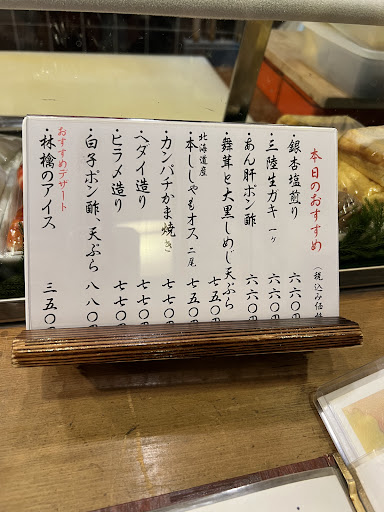 本日のおすすめ(税込み価
・銀杏塩煎り 六六〇円
・三陸生ガキ 一ヶ 六六〇円
・あん肝ポン酢 六六〇円
・舞茸と大黒しめじ天ぷら 七五〇円
北海道産
・本ししゃもオス 二尾 七五〇円
・カンパチかま焼き 七七〇円
・ヘダイ造り 七七〇円
・ヒラメ造り 七七〇円
・白子ポン酢、天ぷら 八八〇円
おすすめデザート
・林檎のアイス 三五〇円